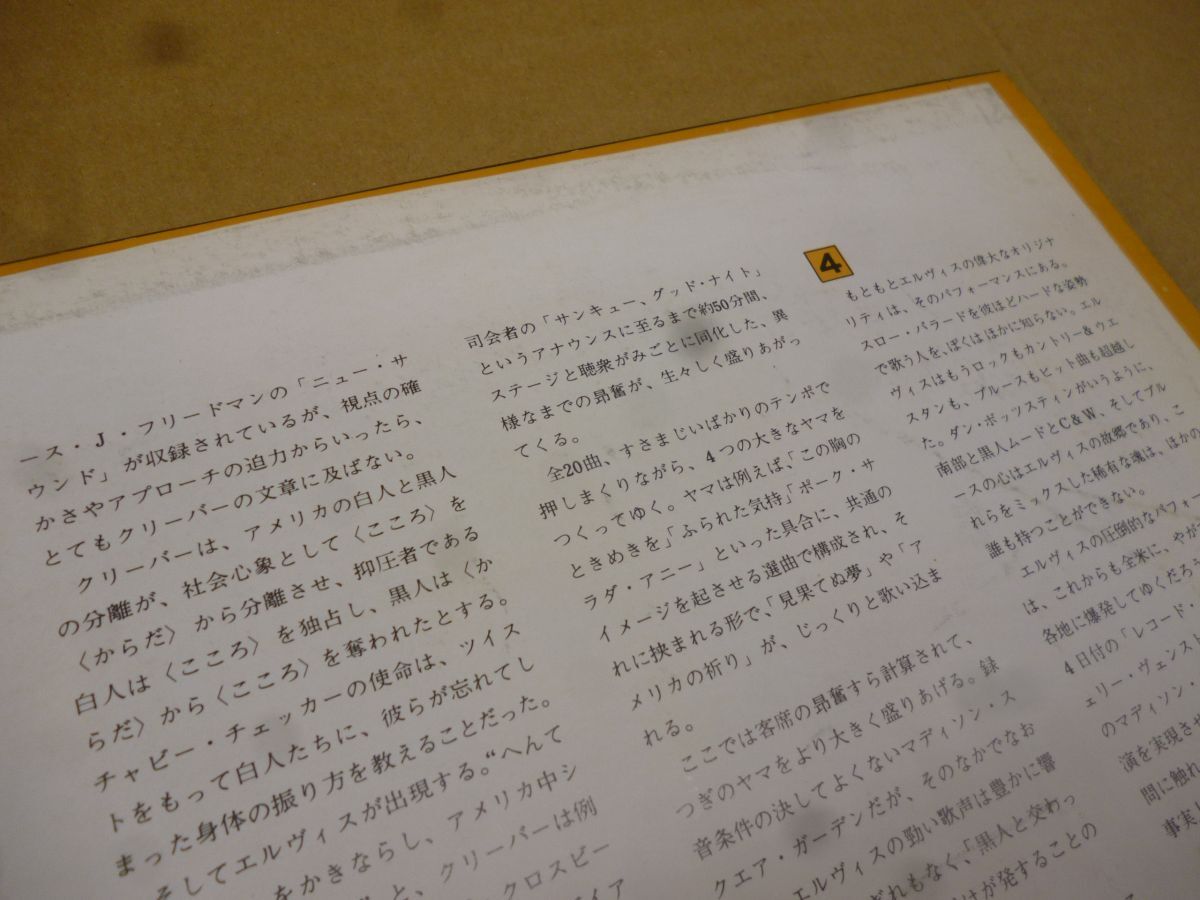 ース・J・フリードマンの「ニュー・サ
ウンド」が収録されているが、視点の確
かさやアプローチの迫力からいったら、
とてもクリーバーの文章に及ばない。
クリーバーは、アメリカの白人と黒人
の分離が、社会心象として〈こころ〉を
〈からだ〉から分離させ、抑圧者である
白人は〈こころ〉を独占し、黒人は〈か
らだ〉から〈こころ〉を奪われたとする。
チャビー・チェッカーの使命は、ツイス
トをもって白人たちに、彼らが忘れてし
まった身体の振り方を教えることだった。
そしてエルヴィスが出現する。“へんて
をかきならし、アメリカ中シ
と、クリーバーは例
クロスビー
司会者の「サンキュー、グッド・ナイト」
というアナウンスに至るまで約50分間、
ステージと聴衆がみごとに同化した、異
様なまでの昂奮が、生々しく盛りあがっ
てくる。
全20曲、すさまじいばかりのテンポで
押しまくりながら、4つの大きなヤマを
つくってゆく。ヤマは例えば、「この胸の
ときめきを」「ふられた気持」「ポーク・サ
ラダ・アニー」といった具合に、共通の
イメージを起させる選曲で構成され、そ
れに挟まれる形で、「見果てぬ夢」や「ア
メリカの祈り」が、じっくりと歌い込ま
れる。
ここでは客席の昂奮すら計算されて、
つぎのヤマをより大きく盛りあげる。録
音条件の決してよくないマディソン・ス
クエア・ガーデンだが、そのなかでなお
エルヴィスの勁い歌声は豊かに響
ぎれもなく、「黒人と交わっ
けが発することの
4
もともとエルヴィスの偉大なオリジナ
リティは、そのパフォーマンスにある。
スロー・バラードを彼ほどハードな姿勢
で歌う人を、ぼくはほかに知らない。エル
ヴィスはもうロックもカントリー&ウエ
スタンも、ブルースもヒット曲も超越し
た。ダン・ボッツスティンがいうように、
南部と黒人ムードとC&W、そしてブル
ースの心はエルヴィスの故郷であり、こ
れらをミックスした稀有な魂は、ほかの
誰も持つことができない。
エルヴィスの圧倒的なパフォー
は、これからも全米に、やが
各地に爆発してゆくだろう
4日付の「レコード・
ェリー・ヴェンス
のマディソン・
演を実現さ
間に触れ
事実し